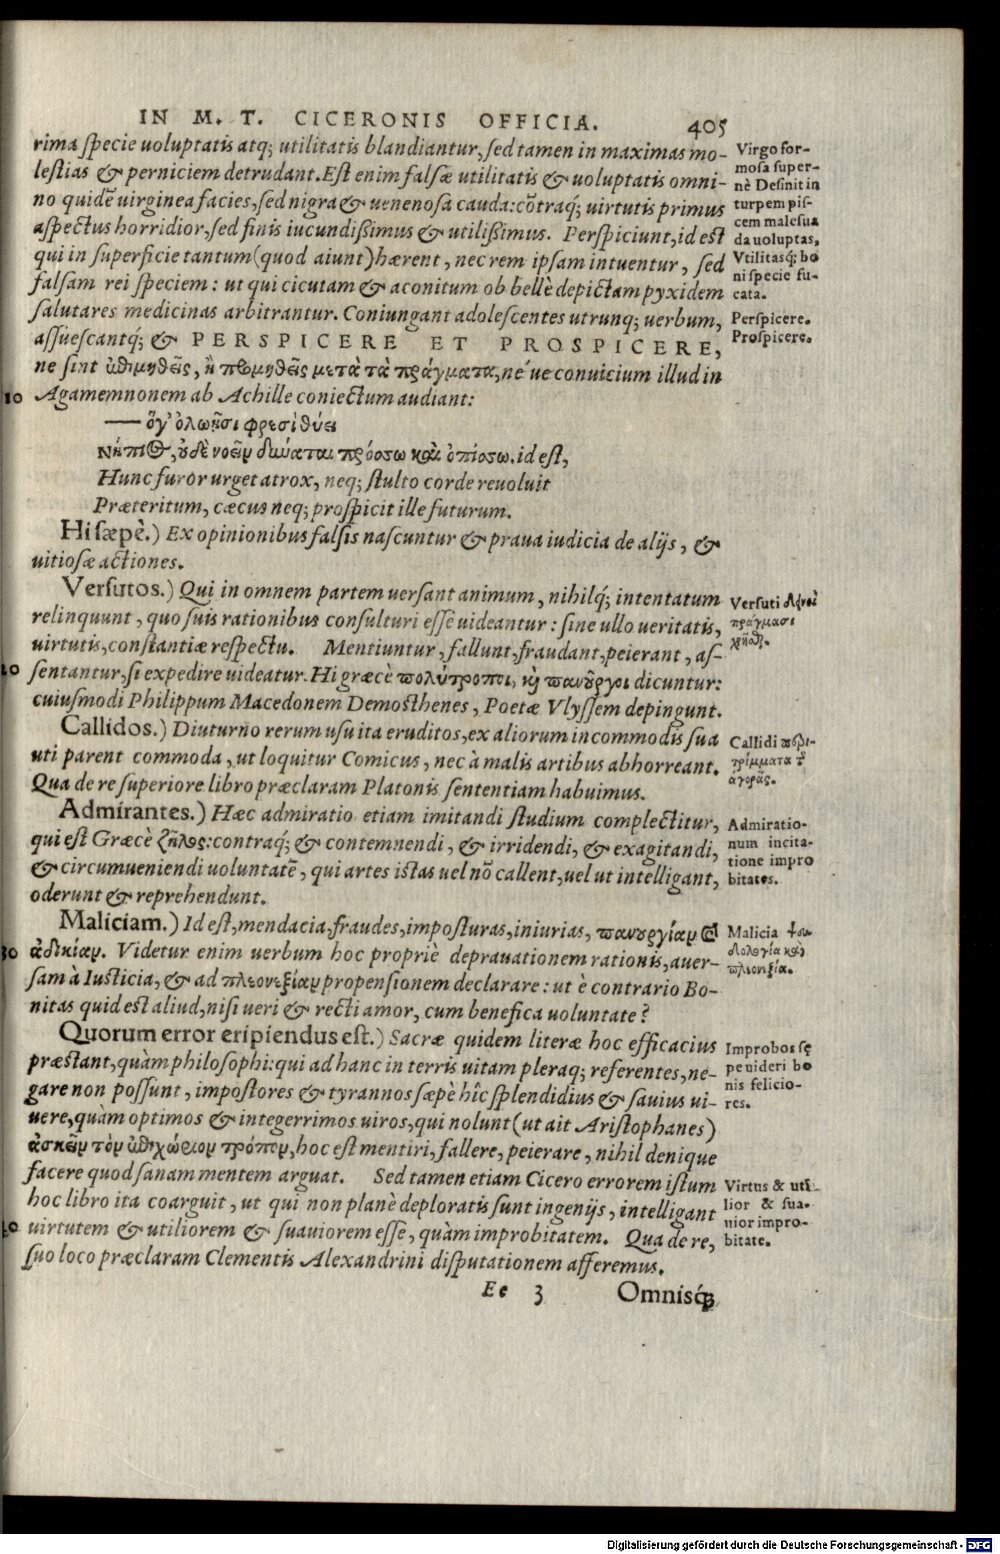 IN M. T. CICERONIS OFFICIA. 405
rima ſpecie uoluptatis atq; utilitatis blandiantur, ſed tamen in maximas mo-
leſtias & perniciem detrudant. Eſt enim falſæ utilitatis & uoluptatis omni-
no quidẽ uirginea facies, ſed nigra & uenenoſa cauda: cõtraq́; uirtutis primus
aſpectus horridior, ſed finis iucundißimus & utilißimus. Perſpiciunt, id eſt
qui in ſuperficie tantum (quod aiunt) hærent, nec rem ipſam intuentur, ſed
falſam rei ſpeciem: ut qui cicutam & aconitum ob bellè depictam pyxidem
ſalutares medicinas arbitrantur. Coniungant adoleſcentes utrunq; uerbum,
aſſueſcantq́; & PERSPICERE ET PROSPICERE,
ne ſint ἐπιμηθεῖς, ἢ προμηθεῖς μετὰ τὰ πράγματα, ne´ue conuicium illud in
10 Agamemnonem ab Achille coniectum audiant:
—— ὅγ' ὀλοιῇσι φρεσὶ θύει
Νήπιος, οὐδὲ νοεῖν δύναται πρόσσω καὶ ὀπίσσω. id eſt,
Hunc furor urget atrox, neq; ſtulto corde reuoluit
Præteritum, cæcus neq; proſpicit ille futurum.
Hi ſæpè.) Ex opinionibus falſis naſcuntur & praua iudicia de alijs, &
uitioſæ actiones.
Verſutos.) Qui in omnem partem uerſant animum, nihilq́; intentatum
relinquunt, quo ſuis rationibus conſulturi eſſe uideantur: ſine ullo ueritatis,
uirtutis, conſtantiæ reſpectu. Mentiuntur, fallunt, fraudant, peierant, aſ-
20 ſentantur, ſi expedire uideatur. Hi græcè πολύτροποι, κỳ πανοῦργοι dicuntur:
cuiuſmodi Philippum Macedonem Demoſthenes, Poetæ Vlyſſem depingunt.
Callidos.) Diuturno rerum uſu ita eruditos, ex aliorum incommodis ſua
uti parent commoda, ut loquitur Comicus, nec à malis artibus abhorreant.
Qua de re ſuperiore libro præclaram Platonis ſententiam habuimus.
Admirantes.) Hæc admiratio etiam imitandi ſtudium complectitur,
qui eſt Græcè ζῆλος: contraq́; & contemnendi, & irridendi, & exagitandi,
& circumueniendi uoluntatẽ, qui artes iſtas uel nõ callent, uel ut intelligant,
oderunt & reprehendunt.
Maliciam.) Id eſt, mendacia, fraudes, impoſturas, iniurias, πανουργίαν &
30 ἀδικίαν. Videtur enim uerbum hoc propriè deprauationem rationis, auer-
ſam à Iuſticia, & ad πλεονεξίαν propenſionem declarare: ut è contrario Bo-
nitas quid eſt aliud, niſi ueri & recti amor, cum benefica uoluntate?
Quorum error eripiendus eſt.) Sacræ quidem literæ hoc efficacius
præſtant, quàm philoſophi: qui ad hanc in terris uitam pleraq; referentes, ne-
gare non poſſunt, impoſtores & tyrannos ſæpè hîc ſplendidius & ſauius ui-
uere, quàm optimos & integerrimos uiros, qui nolunt (ut ait Ariſtophanes)
ἀσκεῖν τὸν ἐπιχώριον τρόπον, hoc eſt mentiri, fallere, peierare, nihil denique
facere quod ſanam mentem arguat. Sed tamen etiam Cicero errorem iſtum
hoc libro ita coarguit, ut qui non planè deploratis ſunt ingenijs, intelligant
40 uirtutem & utiliorem & ſuauiorem eſſe, quàm improbitatem. Qua de re,
ſuo loco præclaram Clementis Alexandrini diſputationem afferemus.
Ee 3 Omnisq́;
Virgo for-
moſa ſuper-
nè Deſinit in
turpem piſ-
cem maleſua
da uoluptas,
Vtilitasq́; bo
ni ſpecie fu-
cata.
Perſpicere.
Proſpicere.
Verſuti δεινοὶ
πράγμασι
χρῆσθ.
Callidi περι-
τρίμματα τ͂
ἀγορᾶς.
Admiratio-
num incita-
tione impro
bitates.
Malicia ψευ
δολογία καὶ
πλεονεξία.
Improbos ſę
pe uideri bo
nis felicio-
res.
Virtus & uti-
lior & ſua-
uior impro-
bitate.
Digitalisierung gefördert durch die Deutsche Forschungsgemeinschaft - DFG